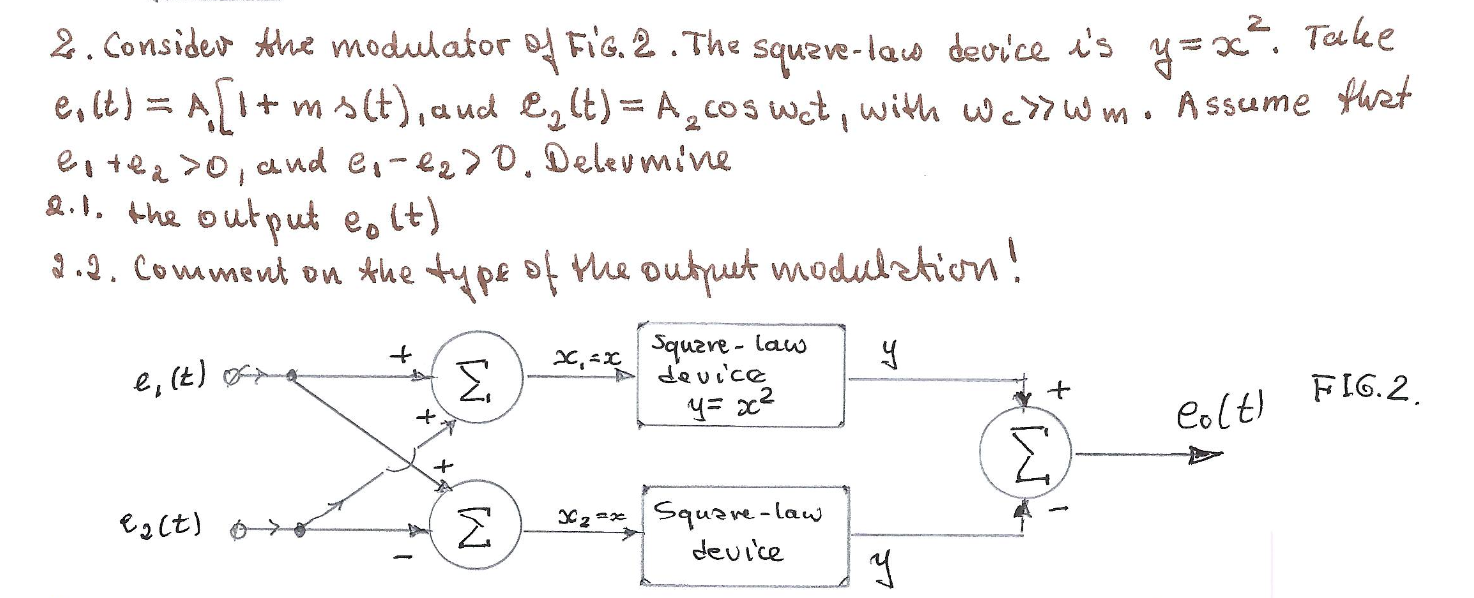 2. Consider the modulator of FIG. 2. The square-law device is y = x². Take
e₁(t) = A₁[1 + m s(t), and e₂(t) = A₂ cos wct, with wc >> wm. Assume that
e₁ + e₂ > 0, and e₁ - e₂ > 0. Determine
2.1. the output e₀(t)
2.2. Comment on the type of the output modulation!
e₁(t)
+
Σ
+
x₁ = x
Square-law
device
y = x²
y
+
Σ
e₀(t)
FIG. 2.
e₂(t)
+
Σ
-
x₂ = x
Square-law
device
y
-